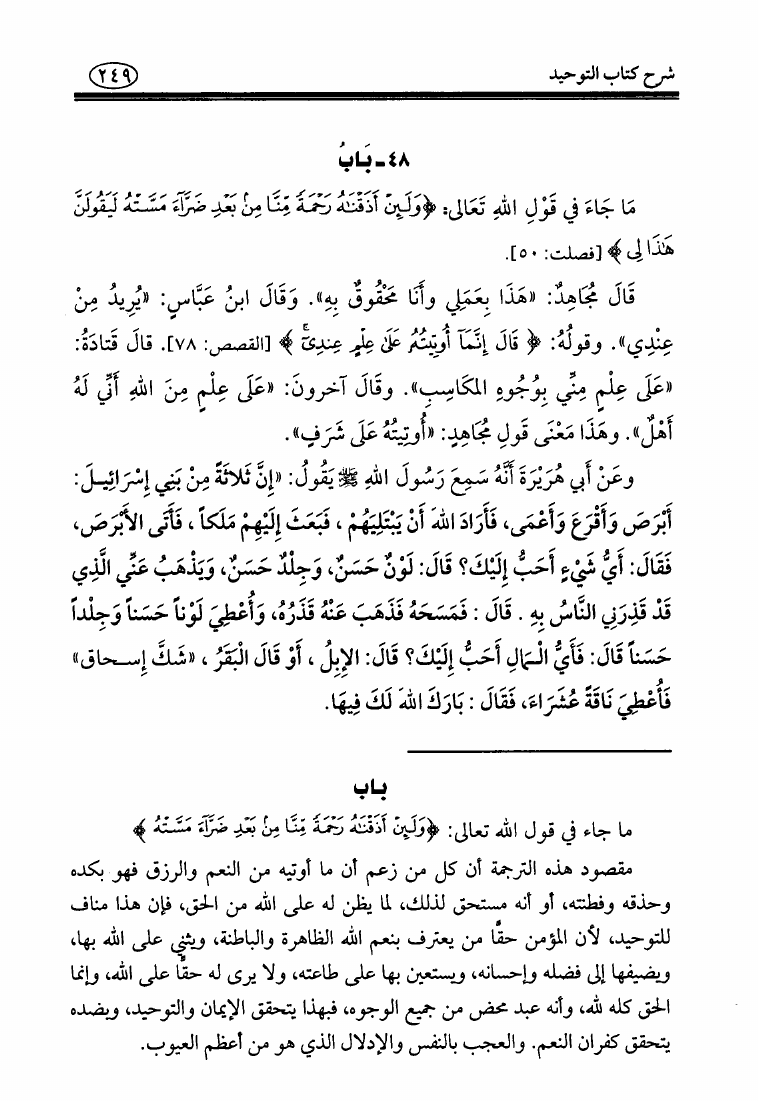 شرح كتاب التوحيد
٢٤٩
٤٨ـ بَابُ
مَا جَاءَ فِي قَوْلِ اللهِ تَعَالَى: ﴿وَلَئِنْ أَذَقْنَاهُ رَحْمَةً مِّنَّا مِنْ بَعْدِ ضَرَّآءَ مَسَّتْهُ لَيَقُولَنَّ
هَٰذَا لِي﴾ [فصلت: ٥٠].
قَالَ مُجَاهِدٌ: «هَذَا بِعَمَلِي وأَنَا مَحْقُوقٌ بِهِ». وَقَالَ ابنُ عَبَّاسٍ: «يُرِيدُ مِنْ
عِنْدِي». وقولُهُ: ﴿قَالَ إِنَّمَآ أُوتِيتُهُۥ عَلَىٰ عِلْمٍ عِندِيٓ﴾ [القصص: ٧٨]. قالَ قَتادَةُ:
«عَلَى عِلْمٍ مِنِّي بِوُجُوهِ المكَاسِبِ». وقَالَ آخرونَ: «عَلَى عِلْمٍ مِنَ اللهِ أَنِّي لَهُ
أَهْلٌ». وهَذَا مَعْنَى قَولِ مُجَاهِدٍ: «أُوتِيتُهُ عَلَى شَرَفٍ».
وعَنْ أَبي هُرَيْرَةَ أَنَّهُ سَمِعَ رَسُولَ اللهِ ﷺ يَقُولُ: «إِنَّ ثَلاثَةً مِنْ بَنِي إِسْرَائِيلَ:
أَبْرَصَ وَأَقْرَعَ وَأَعْمَى، فَأَرَادَ اللهُ أَنْ يَبْتَلِيَهُمْ، فَبَعَثَ إِلَيْهِمْ مَلَكاً، فَأَتَى الأَبْرَصَ،
فَقَالَ: أَيُّ شَيْءٍ أَحَبُّ إِلَيْكَ؟ قَالَ: لَوْنٌ حَسَنٌ، وَجِلْدٌ حَسَنٌ، وَيَذْهَبُ عَنِّي الَّذِي
قَدْ قَذِرَنِي النَّاسُ بِهِ. قَالَ: فَمَسَحَهُ فَذَهَبَ عَنْهُ قَذَرُهُ، وَأُعْطِيَ لَوْناً حَسَناً وَجِلْداً
حَسَناً قَالَ: فَأَيُّ الْمَالِ أَحَبُّ إِلَيْكَ؟ قَالَ: الإِبِلُ، أَوْ قَالَ الْبَقَرُ، «شَكَّ إسحاق»
فَأُعْطِيَ نَاقَةً عُشَرَاءَ، فَقَالَ: بَارَكَ اللهُ لَكَ فِيهَا.
باب
ما جاء في قول الله تعالى: ﴿وَلَئِنْ أَذَقْنَاهُ رَحْمَةً مِّنَّا مِنْ بَعْدِ ضَرَّآءَ مَسَّتْهُ﴾
مقصود هذه الترجمة أن كل من زعم أن ما أوتيه من النعم والرزق فهو بكده
وحذقه وفطنته، أو أنه مستحق لذلك، لما يظن له على الله من الحق، فإن هذا مناف
للتوحيد، لأن المؤمن حقًّا من يعترف بنعم الله الظاهرة والباطنة، ويثني على الله بها،
ويضيفها إلى فضله وإحسانه، ويستعين بها على طاعته، ولا يرى له حقًّا على الله، وإنما
الحق كله لله، وأنه عبد محض من جميع الوجوه، فبهذا يتحقق الإيمان والتوحيد، وبضده
يتحقق كفران النعم. والعجب بالنفس والإدلال الذي هو من أعظم العيوب.